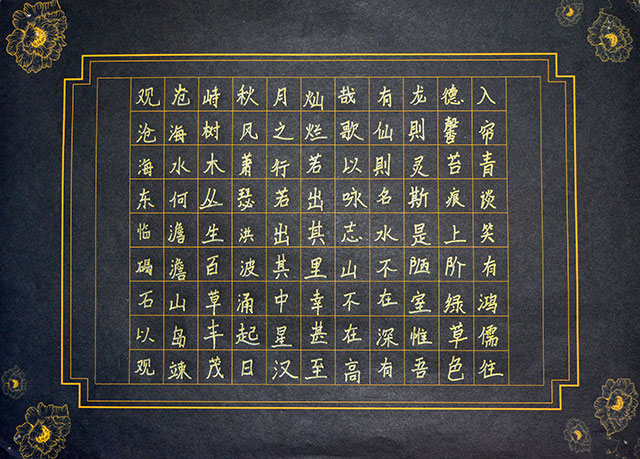 观沧海东临碣石以观
沧海水何澹澹山岛竦
峙树木丛生百草丰茂
秋风萧瑟洪波涌起日
月之行若出其中星汉
灿烂若出其里幸甚至
哉歌以咏志山不在高
有仙則名水不在深有
龙則灵斯是陋室惟吾
德馨苔痕上阶绿草色
入帘青谈笑有鸿儒往